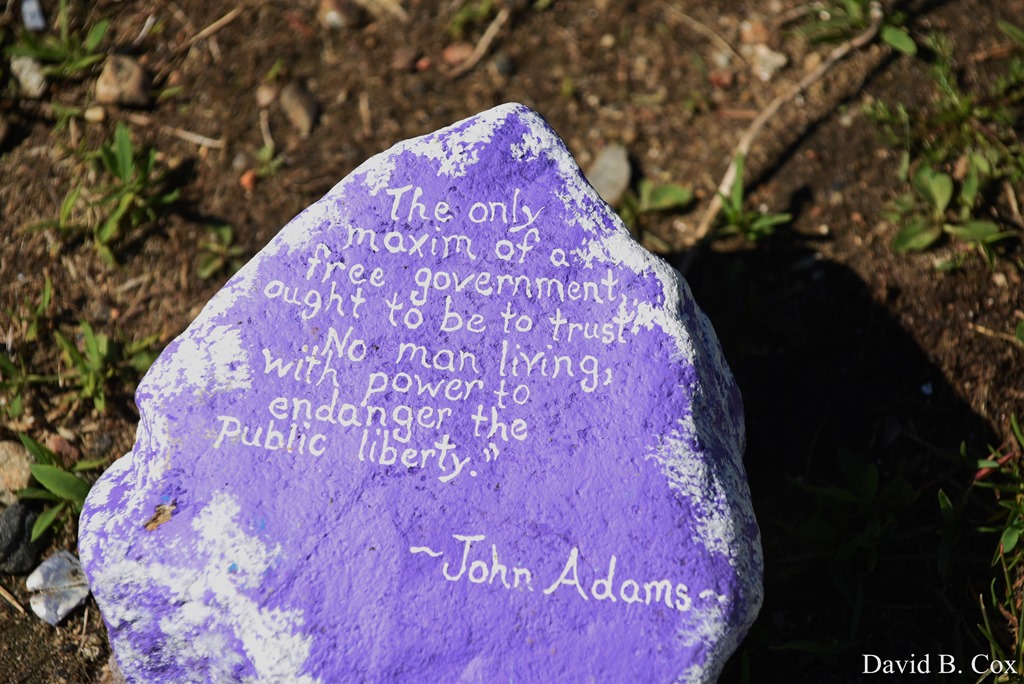 The only
maxim of a
free government,
ought to be to trust
No man living,
with power to
endanger the
Public liberty."
~John Adams~
David B. Cox